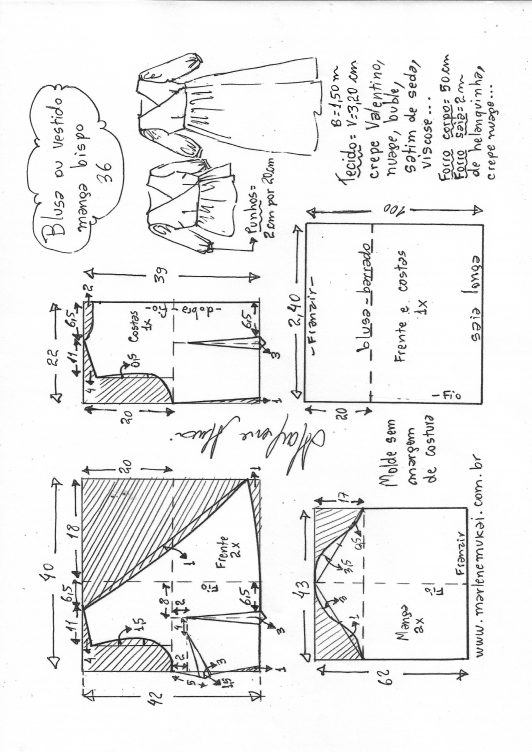 Blusa ou vestido
manga bispo
36
Punhos=
2cm por 20cm
Tecido = B=1,50m
V=3,20 cm
crepe Valentino,
nuage, buble,
satim de seda,
viscose...
Forro corpo= 50 cm
Forro saia = 2 m
de helanquinha,
crepe nuage...
39
2
6,5
11
22
4
0,5
Costas
1x
Fio
-dobra-
6,5
3
1
20
100
2,40
-Franzir-
blusa-barrado
Frente e costas
1x
saia longa
Fio
20
Marlene Mukai
Molde sem
margem
de costura
www.marlenemukai.com.br
20
18
40
6,5
11
4
1,5
1
1
Frente
2x
Fio
8
2
4
6,5
3
2
7
5
3
1,5
1
42
17
43
0,5
3,5
3
1
Manga
2x
Fio
Franzir
62